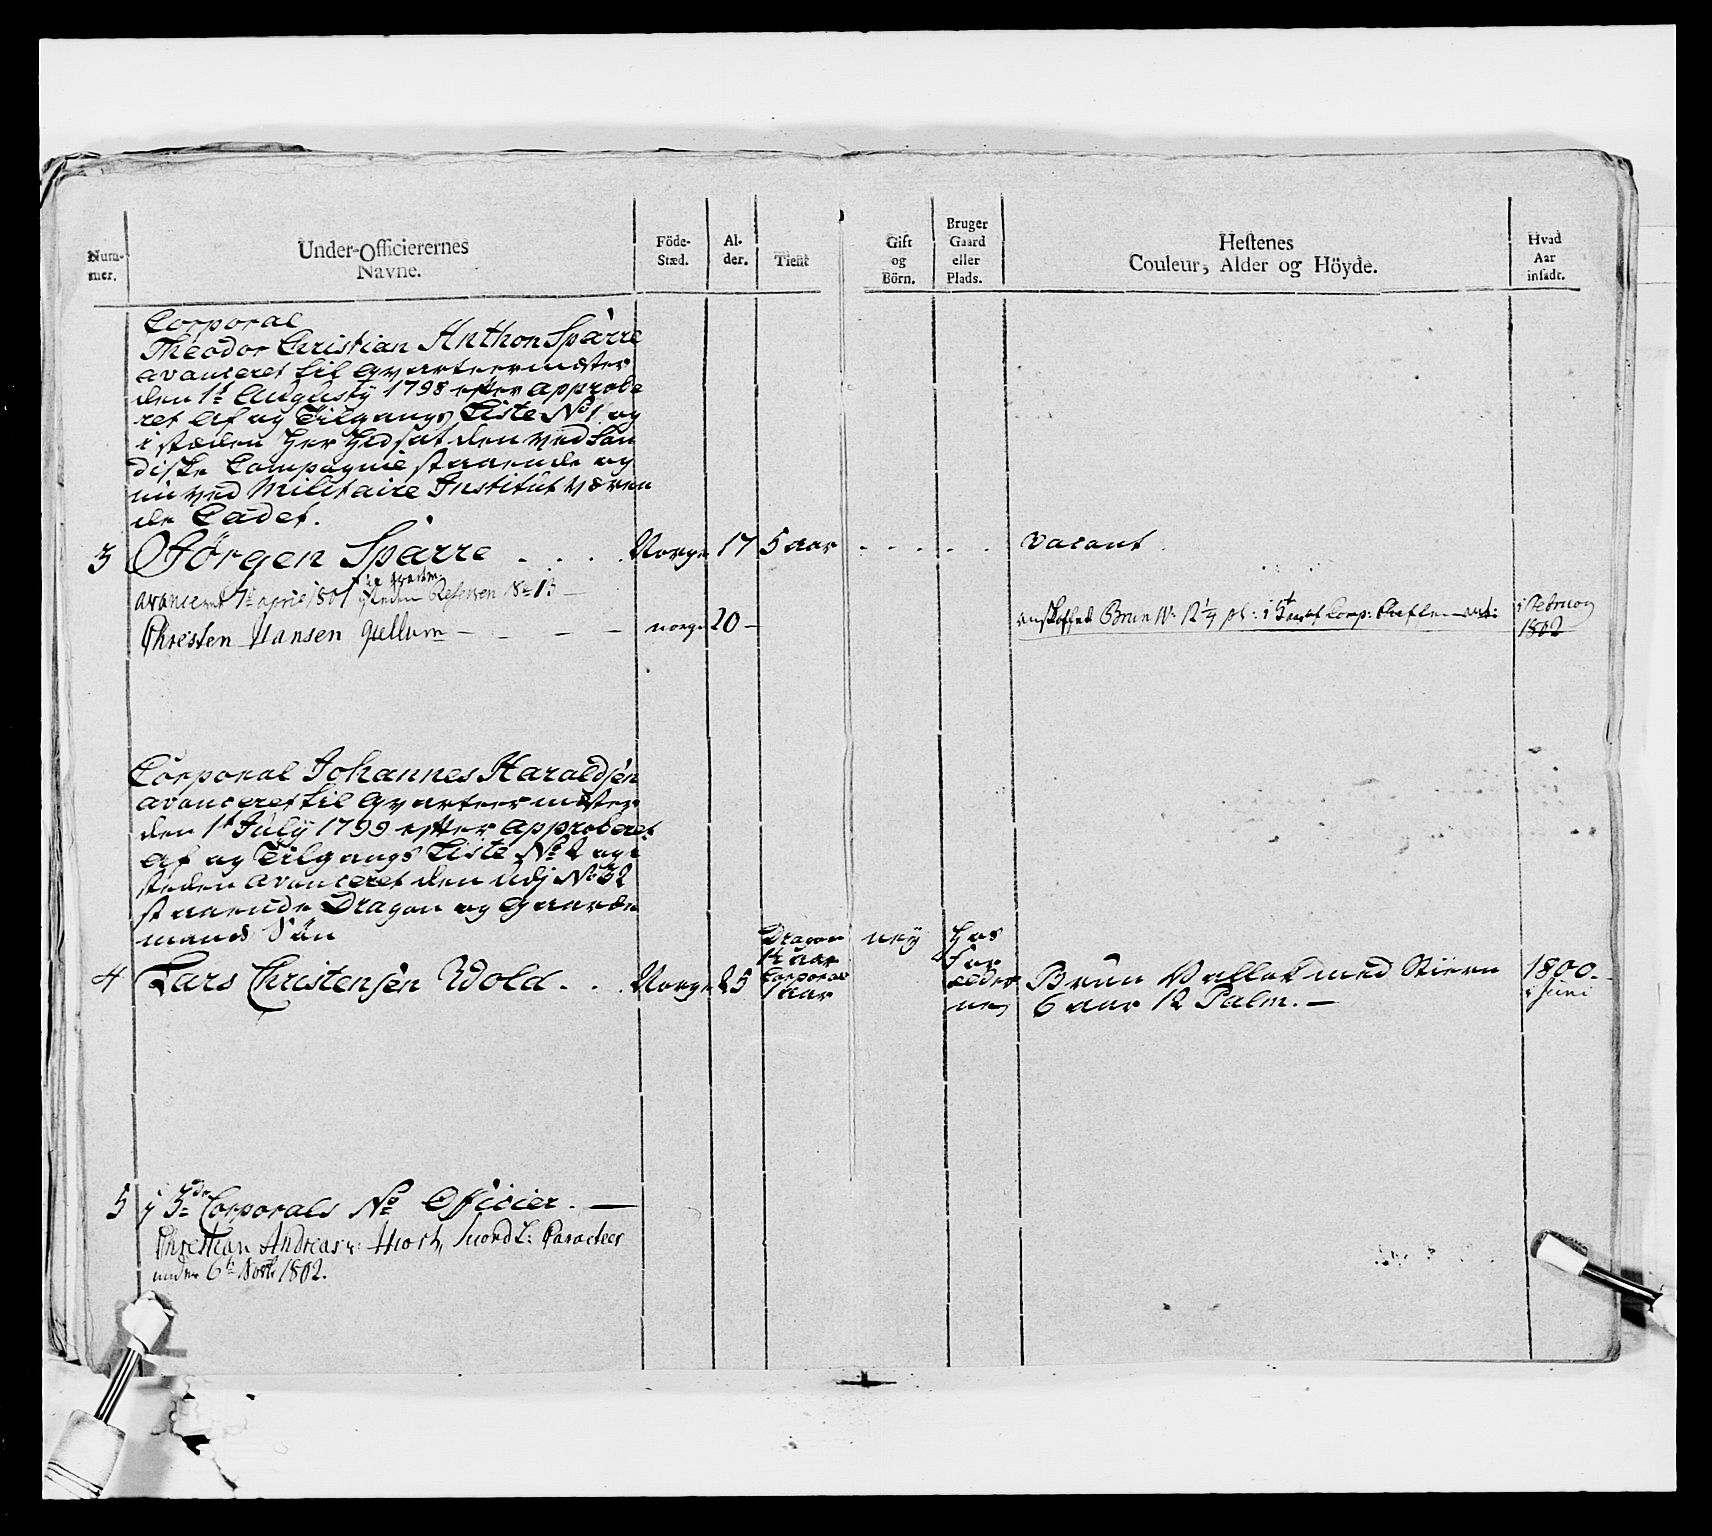 Num-
mer.
Under-Officierernes
Navne.
Föde-
Stæd.
Al-
der.
Tient
Gift
og
Börn.
Bruger
Gaard
eller
Plads.
Hestenes
Couleur, Alder og Höyde.
Hvad
Aar
insadt.
Corporal
Theodor Christian Anthon Sparre
avanceret til Qvarteermæster
den 1t Augusty 1798 efter approbe
ret Af og Tilgangs Liste No 1 og
i stæden her Hidsat den ved
diske Compagnie staaende og
nu ved Militaire Institut væren
de Cadet.
3 Jørgen Sparre . . . . Norge 17 5 aar . . . . . vacant.
avanceret 1t april 1801
Christen Hansen norge 20 — anskaffed Brun 12 1/4 i Februar
1802
Corporal Johannes Haraldsen
avanceret til Qvarteermæster
den 1t July 1799 efter approberet
Af og Tilgangs Liste No 2 og i
steden avanceret den udj No 32
staaende Dragon og Gaarde
mands Sön
4 Lars Christensen Wold . . . Norge 25
Dragon
1½ aar
Corporal
1 aar
ney
Hos
For
ælder
ne
Brun Vallak med Stiern
6 aar 12 Palm. —
1800.
i Juni
5 3de Corporals No Officier. —
Christian Andreas
under 6t 1802.